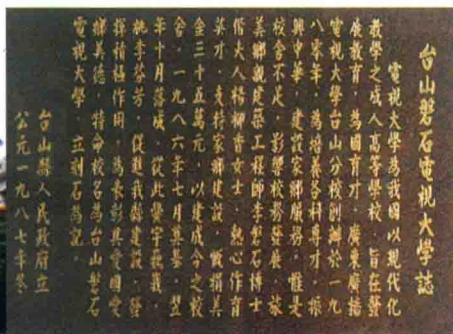 台山磐石電視大學誌
電視大學為我國以現代化
教學之成人高等學校旨在發
展教育為國育才廣東廣播
電視大學台山分校創辦於一九
八零年為培養各科專才振
興中華建設家鄉服務惟是
校舍不足影響校務發展旅
美鄉親建築工程師李磐石博士
偕夫人楊柳青女士熱心作育
英才支持家鄉建設慨捐美
金三十五萬元以建成今之校
舍一九八六年七月奠基翌
年十月落成從此黌宇巍峩
桃李芬芳促進我縣建設發
揮積極作用為表彰其愛國愛
鄉美德特命校名為台山磐石
電視大學立刻石為記
台山縣人民政府立
公元一九八七年冬